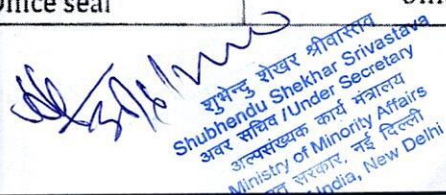 Office seal
शुभेन्दु शेखर श्रीवास्तव
Shubhendu Shekhar Srivastava
अवर सचिव /Under Secretary
अल्पसंख्यक कार्य मंत्रालय
Ministry of Minority Affairs
सरकार, नई दिल्ली
India, New Delhi